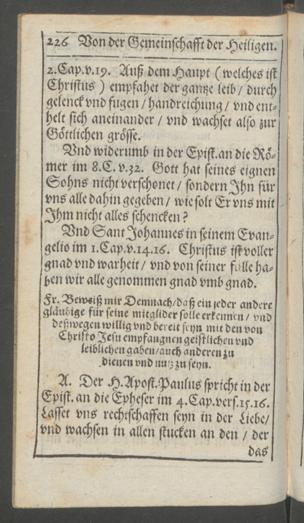 226 Von der Gemeinschafft der Heiligen.
2.Cap.v.19. Auß dem Haupt (welches ist
Christus) empfahet der gantze leib / durch
gelenck vnd fugen / handreichung / vnd ent-
helt sich aneinander / vnd wachset also zur
Göttlichen grösse.
Vnd widerumb in der Epist. an die Rö-
mer im 8.C.v.32. Gott hat seines eignen
Sohns nicht verschonet / sondern Ihn für
vns alle dahin gegeben / wie solt Er vns mit
Ihm nicht alles schencken?
Vnd Sant Johannes in seinem Evan-
gelio im 1.Cap.v.14.16. Christus ist voller
gnad vnd warheit / vnd von seiner fülle ha-
ben wir alle genommen gnad vmb gnad.
Fr. Beweiß mir Demnach / daß ein jeder andere
gläubige für seine mitglider solle erkennen / vnd
deßwegen willig vnd bereit seyn mit den von
Christo Jesu empfangnen geistlichen vnd
leiblichen gaben / auch anderen zu
dienen vnd nutz zu seyn.
A. Der H. Apost. Paulus spricht in der
Epist. an die Epheser im 4.Cap.vers.15.16.
Lasset vns rechtschaffen seyn in der Liebe /
vnd wachsen in allen stucken an den / der
das